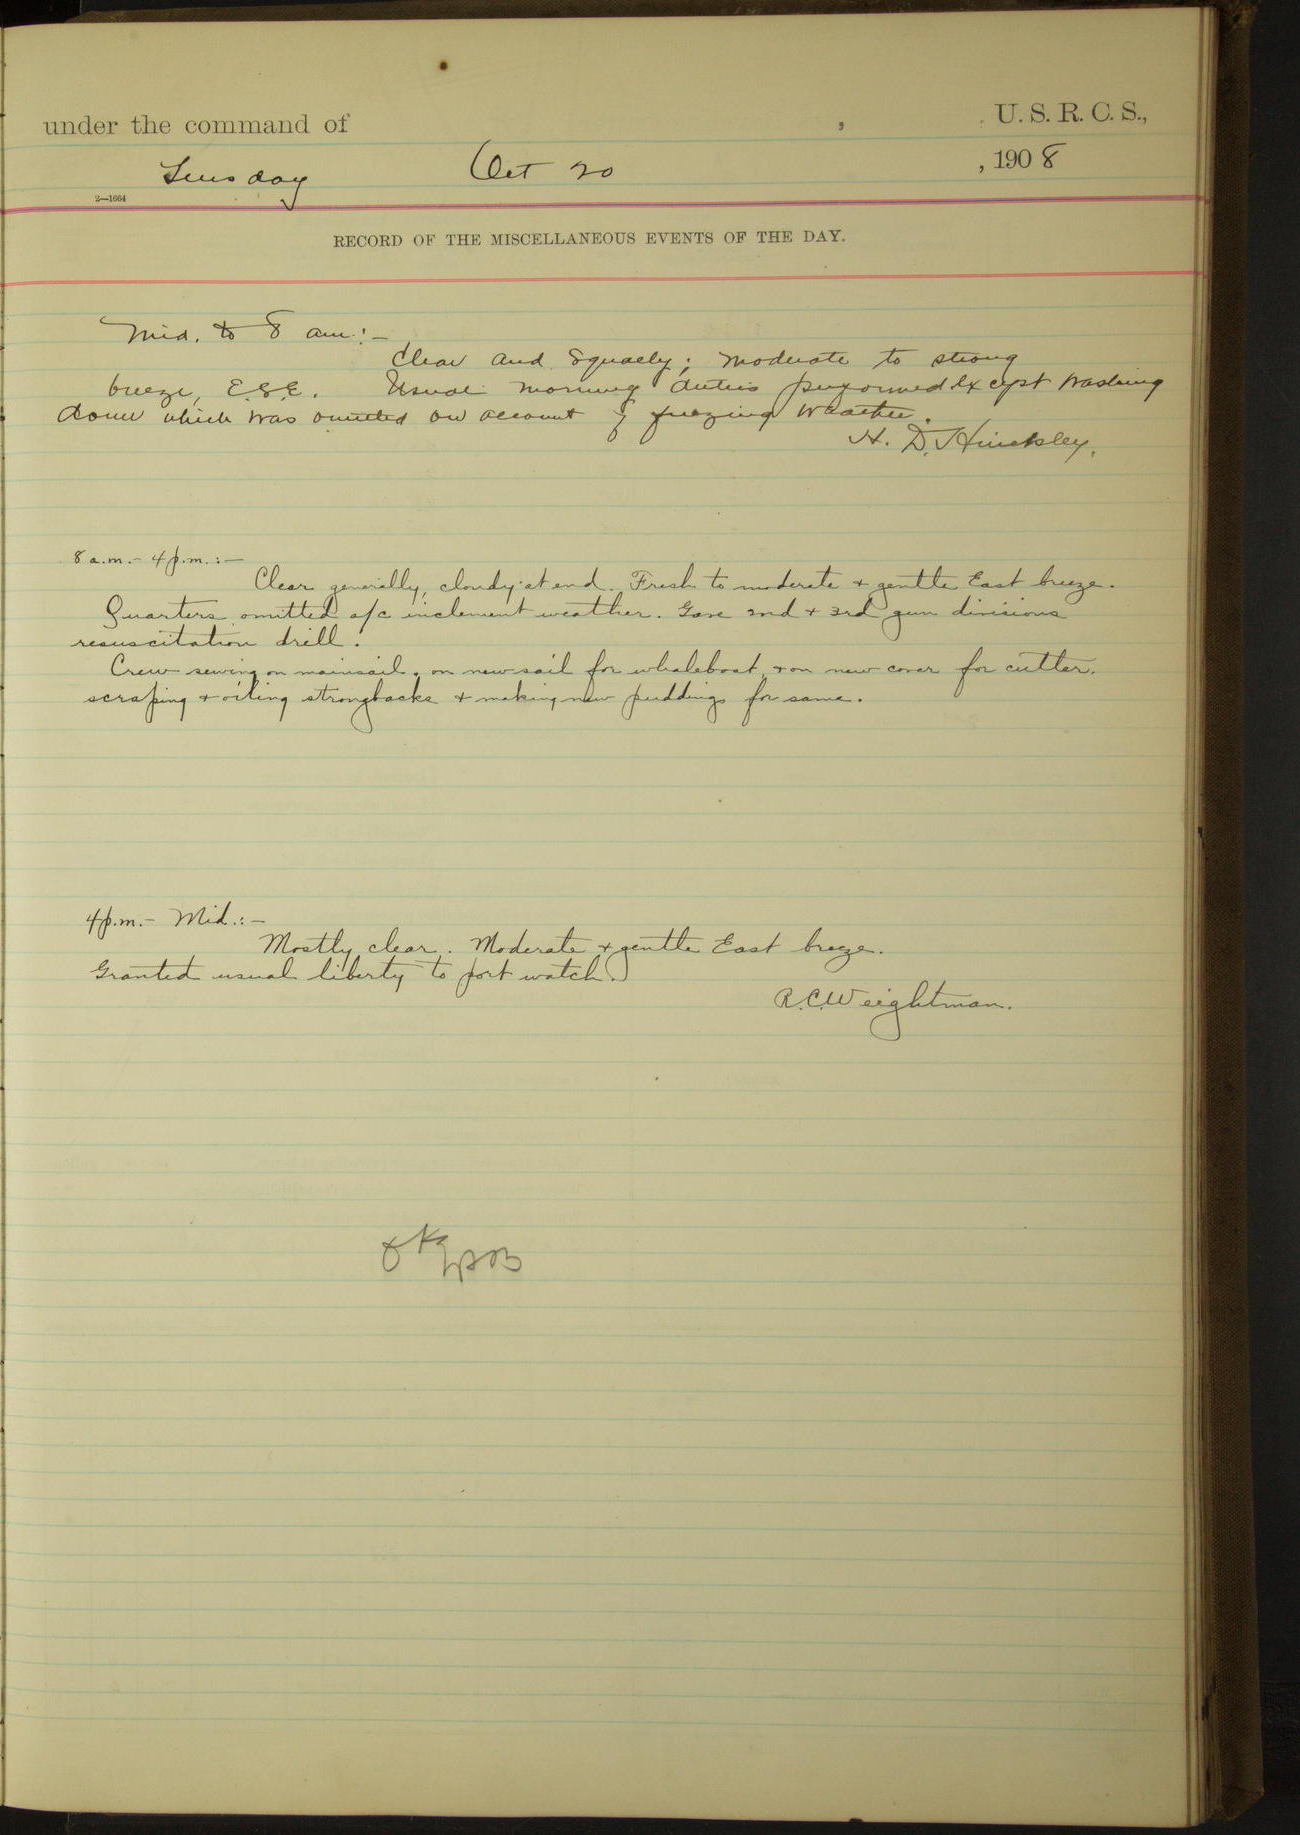 under the command of , U. S. R. C. S.,
Tuesday Oct 20 , 1908
2—1664
RECORD OF THE MISCELLANEOUS EVENTS OF THE DAY.
Mid. to 8 am:—
Clear and Squally; moderate to strong
breeze, E.S.E. Usual morning duties performed except washing
down which was omitted on account of freezing weather.
H. D. Hinckley.
8 a.m. - 4 p.m.:—
Clear generally, cloudy at end. Fresh to moderate + gentle East breeze.
Quarters omitted a/c inclement weather. Gave 2nd + 3rd gun divisions
resuscitation drill.
Crew sewing on mainsail, on new sail for whaleboat, + on new cover for cutter.
scraping + oiling strongbacks + making new puddings for same.
4 p.m. - Mid.:—
Mostly clear. Moderate + gentle East breeze.
Granted usual liberty to port watch.
R.C. Weightman.
OK